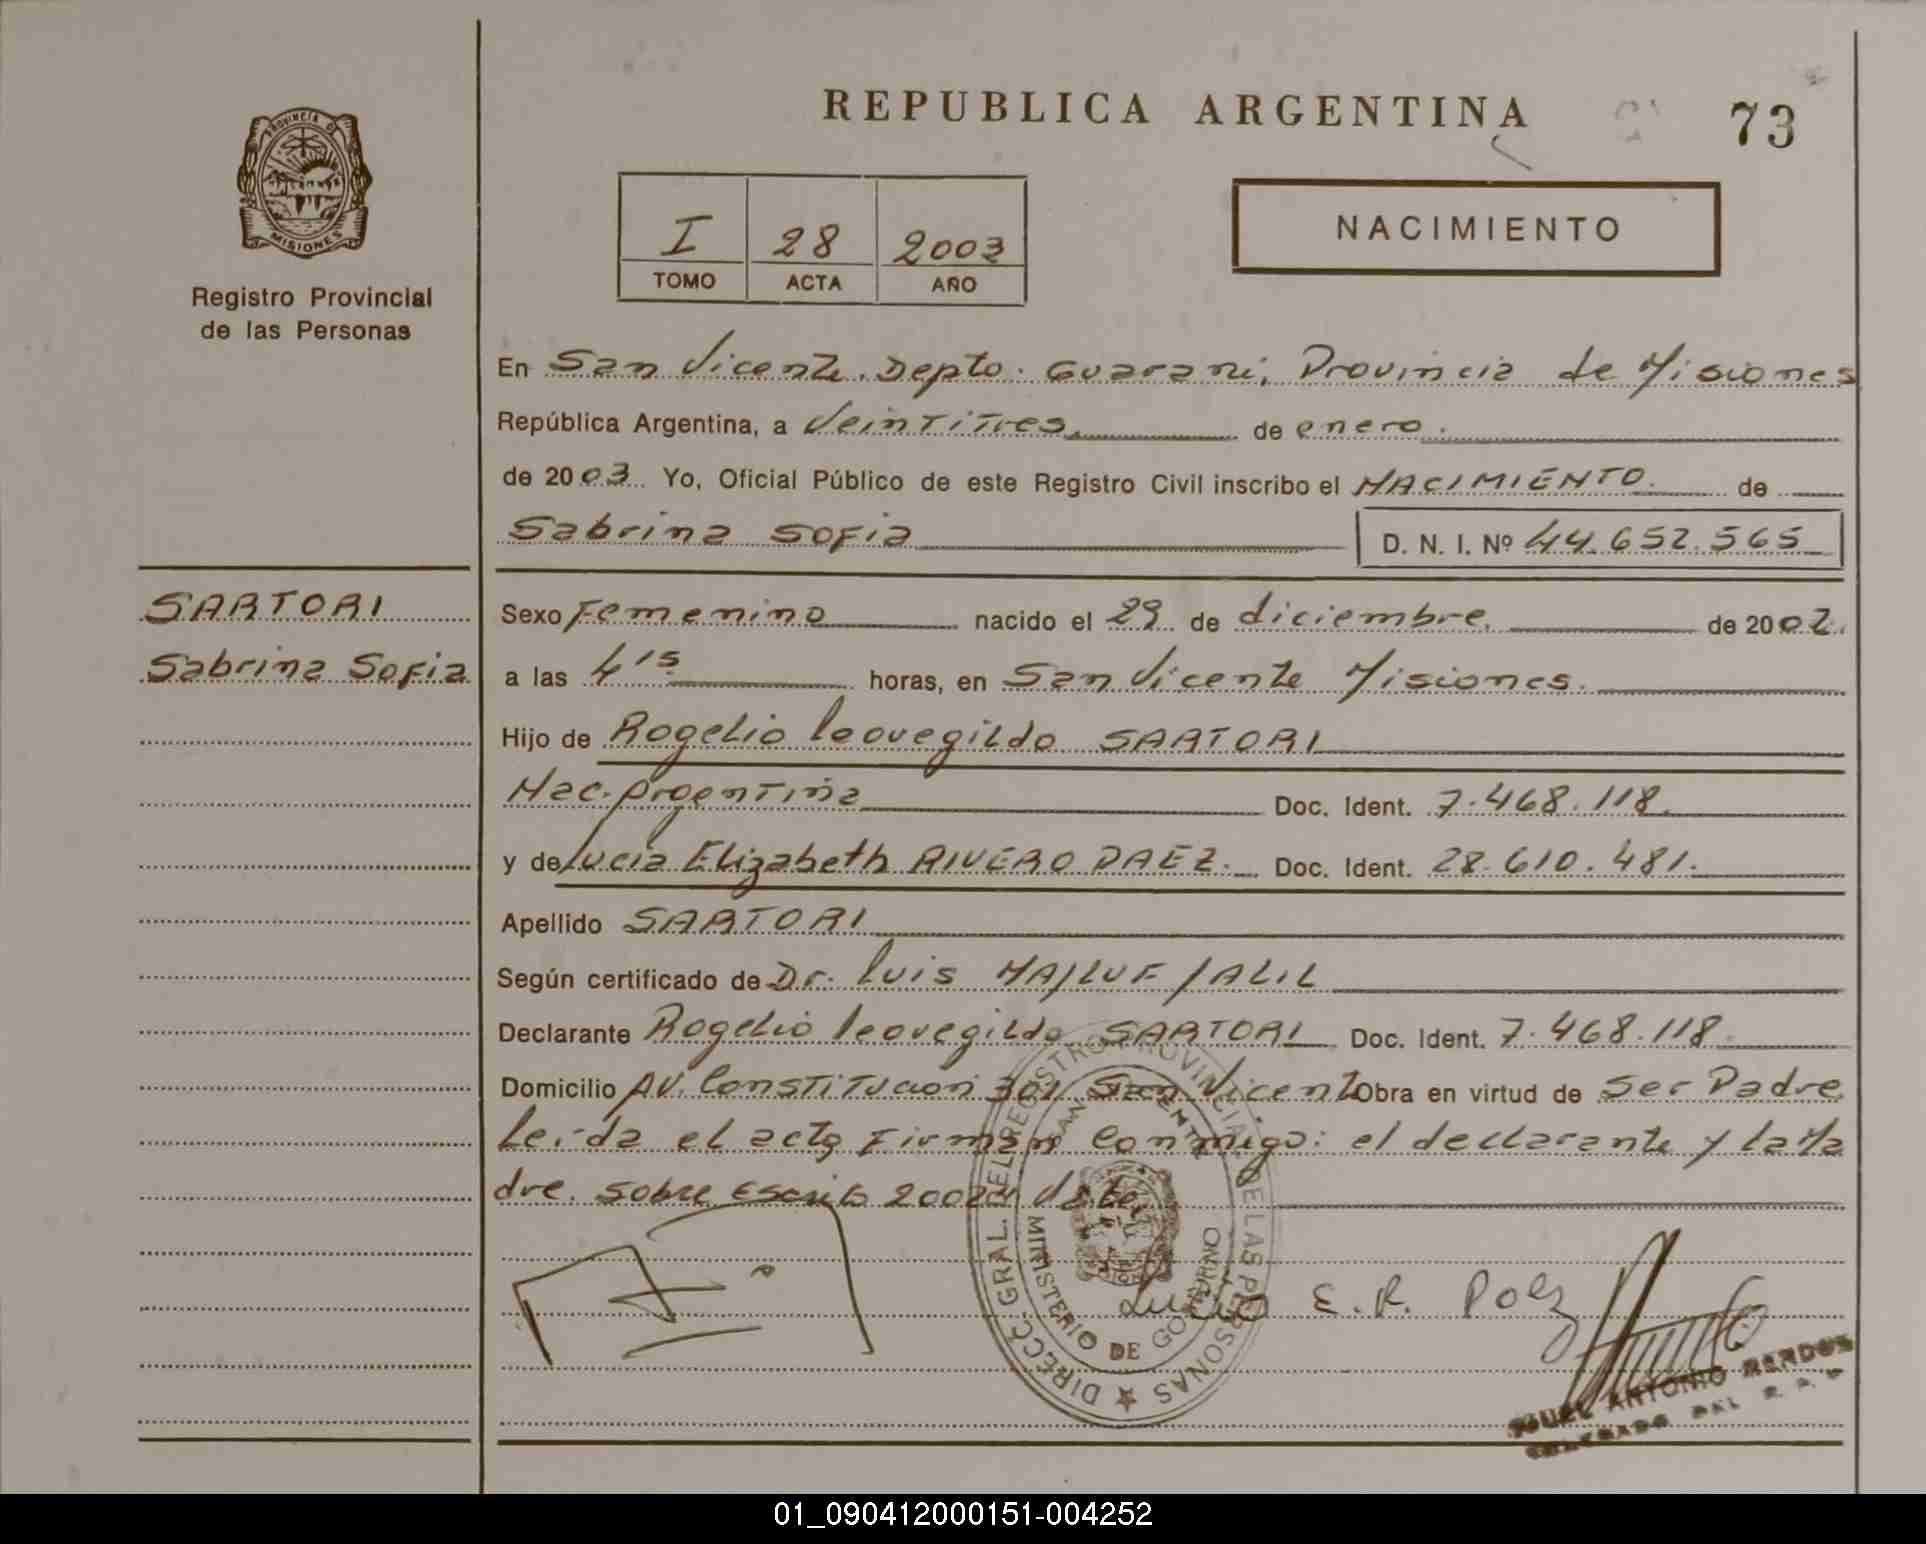 REPUBLICA ARGENTINA
73
PROVINCIA DE
MISIONES
Registro Provincial
de las Personas
I 28 2003
TOMO ACTA AÑO
NACIMIENTO
En San Vicente. Depto. Guaraní, Provincia de Misiones
República Argentina, a Veintitres. de enero.
de 2003. Yo, Oficial Público de este Registro Civil inscribo el NACIMIENTO. de
Sabrina Sofia D. N. I. Nº 44.652.565
SARTORI
Sabrina Sofia
Sexo Femenino nacido el 29 de diciembre. de 2002.
a las 4 15 horas, en San Vicente Misiones.
Hijo de Rogelio leovegildo SARTORI
Nac. Argentina Doc. Ident. 7.468.118.
y de Lucia Elizabeth RIVERO PAEZ. Doc. Ident. 28.610.481.
Apellido SARTORI
Según certificado de Dr. Luis MAJLUF JALIL
Declarante Rogelio leovegildo SARTORI Doc. Ident. 7.468.118.
Domicilio AV. Constitucion 301 San Vicente Obra en virtud de Ser Padre
Leída el acta Firman Conmigo: el declarante y la Ma
dre. Sobre Escrito 2002
DIRECC. GRAL. DEL REGISTRO PROVINCIAL DE LAS PERSONAS
SAN VICENTE
MINISTERIO DE GOBIERNO
Lucia E.R. Paez
ANTONIO
01_090412000151-004252